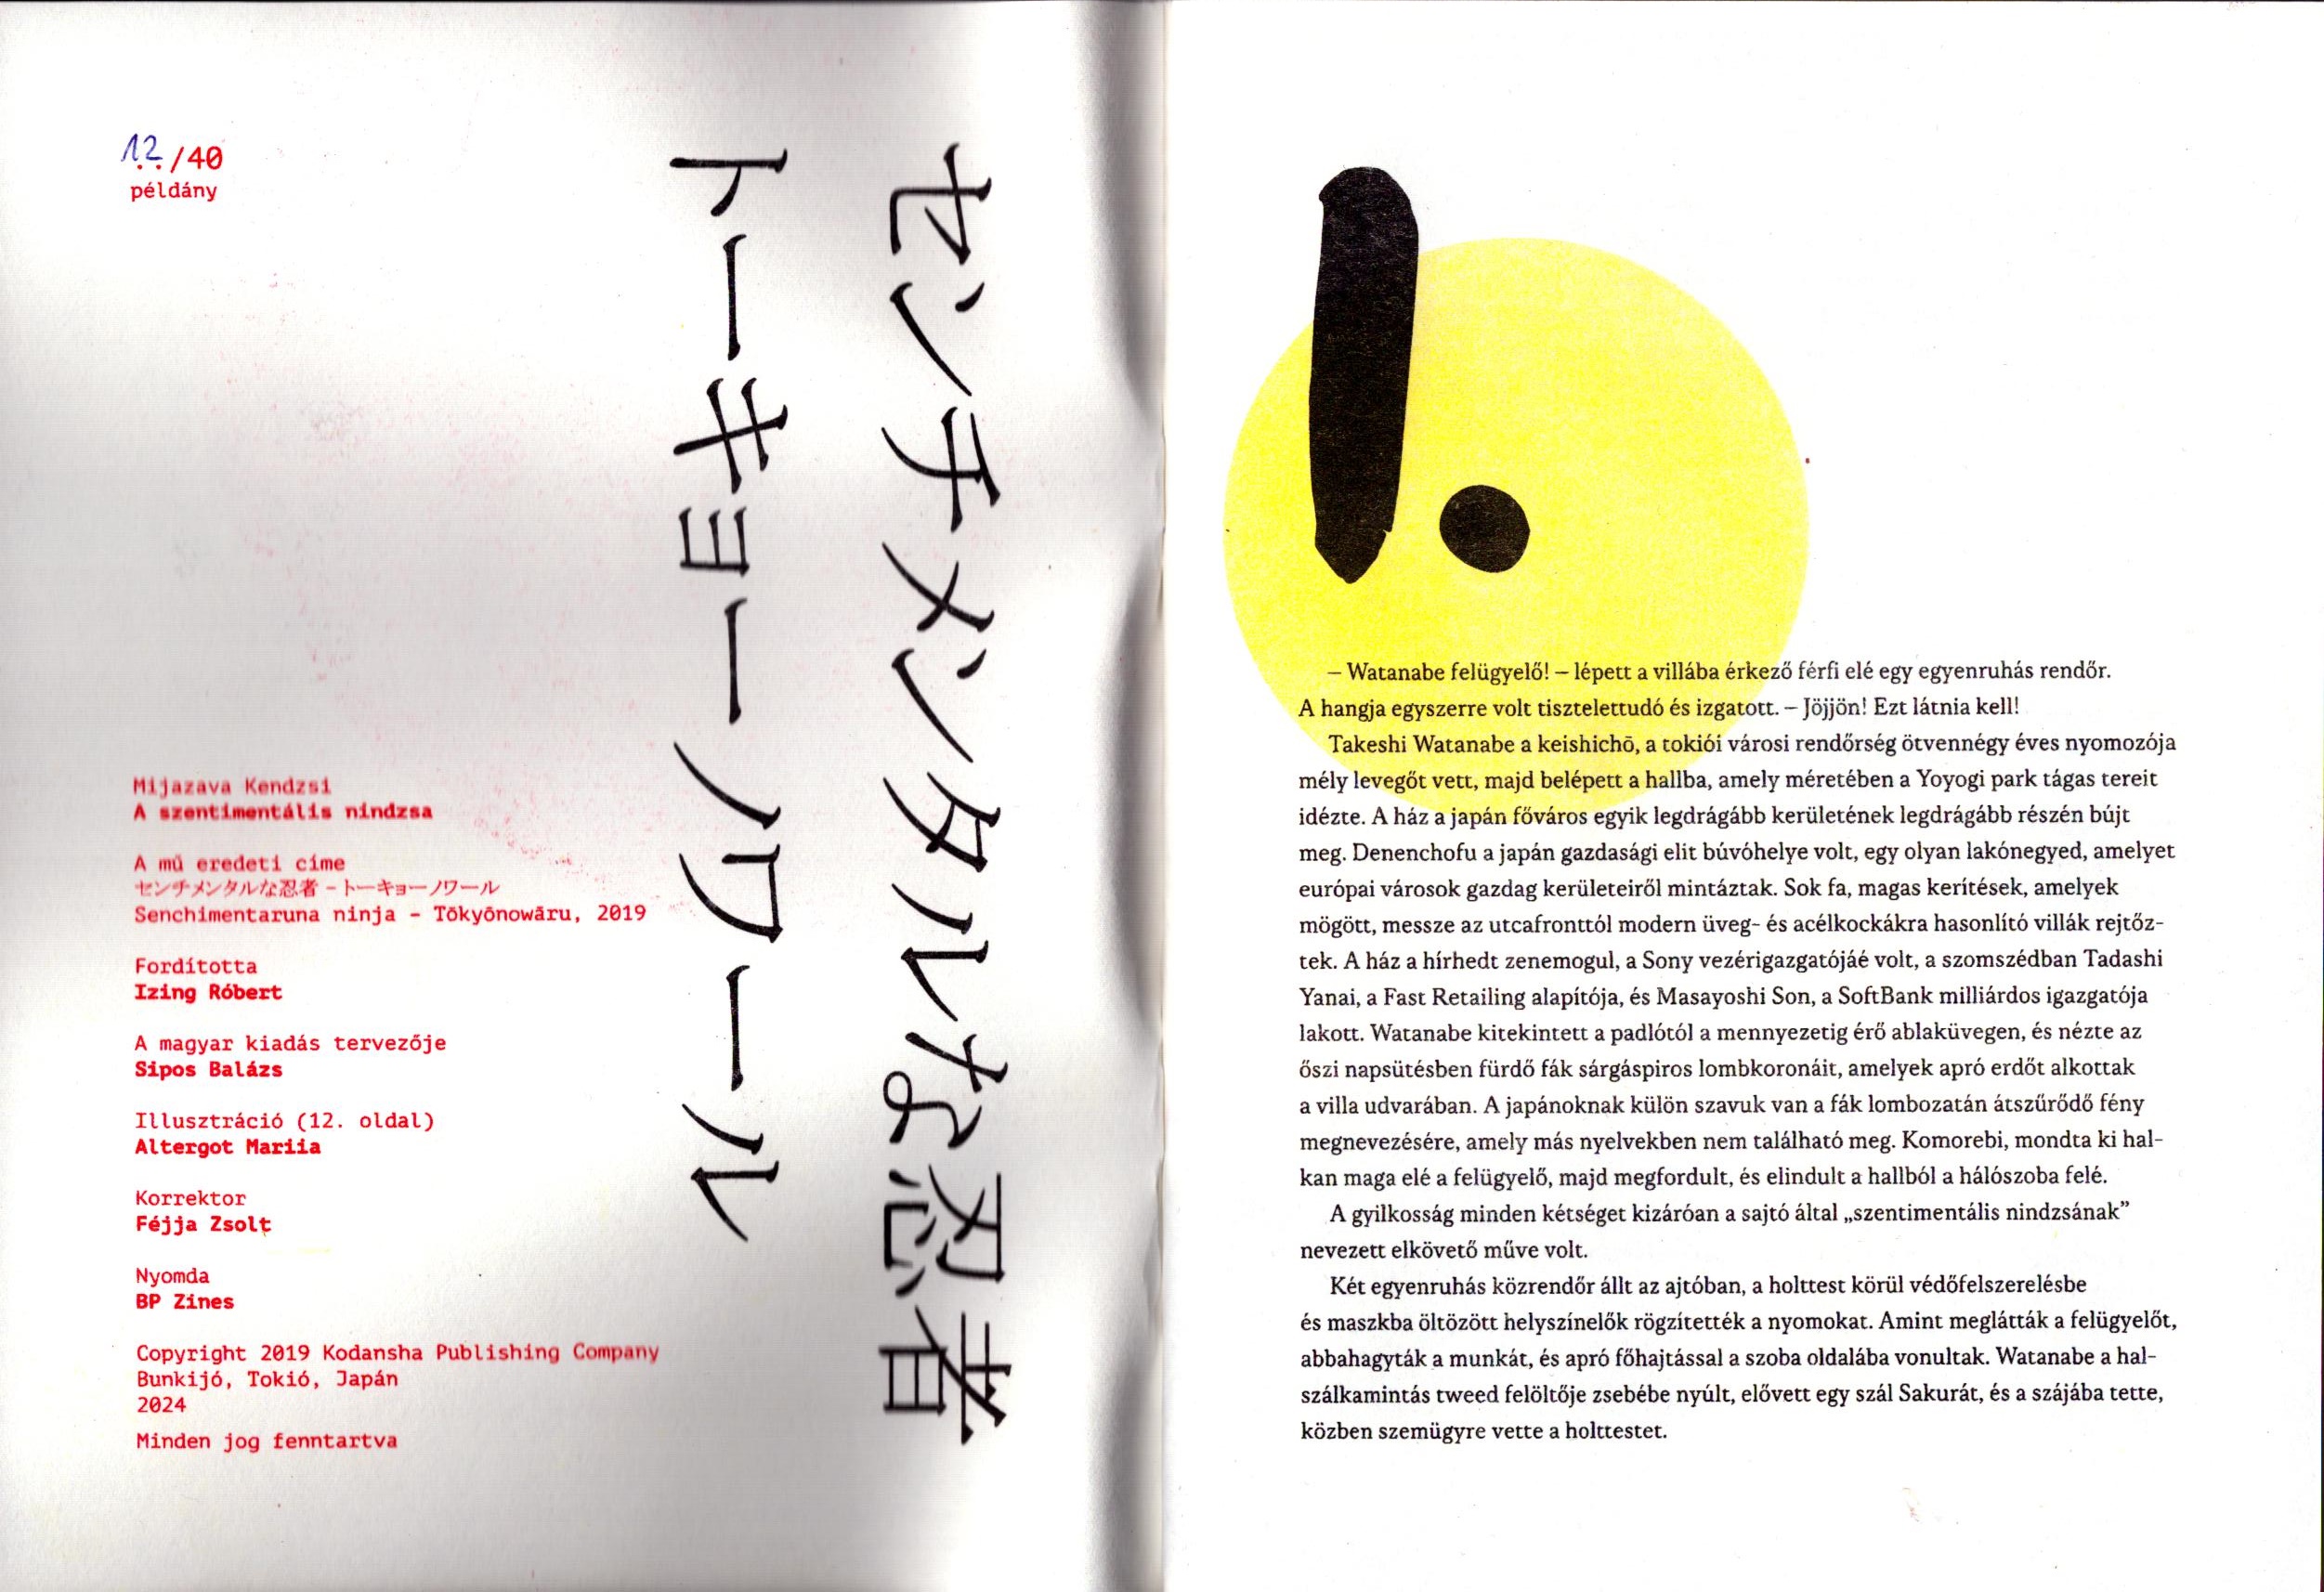 12./40
példány
センチメンタルな忍者
トーキョーノワール
Mijazava Kendzsi
A szentimentális nindzsa
A mű eredeti címe
センチメンタルな忍者 – トーキョーノワール
Senchimentaruna ninja – Tōkyōnowāru, 2019
Fordította
Izing Róbert
A magyar kiadás tervezője
Sipos Balázs
Illusztráció (12. oldal)
Altergot Mariia
Korrektor
Féjja Zsolt
Nyomda
BP Zines
Copyright 2019 Kodansha Publishing Company
Bunkijó, Tokió, Japán
2024
Minden jog fenntartva
1.
– Watanabe felügyelő! – lépett a villába érkező férfi elé egy egyenruhás rendőr.
A hangja egyszerre volt tisztelettudó és izgatott. – Jöjjön! Ezt látnia kell!
Takeshi Watanabe a keishichō, a tokiói városi rendőrség ötvennégy éves nyomozója
mély levegőt vett, majd belépett a hallba, amely méretében a Yoyogi park tágas tereit
idézte. A ház a japán főváros egyik legdrágább kerületének legdrágább részén bújt
meg. Denenchofu a japán gazdasági elit búvóhelye volt, egy olyan lakónegyed, amelyet
európai városok gazdag kerületeiről mintáztak. Sok fa, magas kerítések, amelyek
mögött, messze az utcafronttól modern üveg- és acélkockákra hasonlító villák rejtőz-
tek. A ház a hírhedt zenemogul, a Sony vezérigazgatójáé volt, a szomszédban Tadashi
Yanai, a Fast Retailing alapítója, és Masayoshi Son, a SoftBank milliárdos igazgatója
lakott. Watanabe kitekintett a padlótól a mennyezetig érő ablaküvegen, és nézte az
őszi napsütésben fürdő fák sárgáspiros lombkoronáit, amelyek apró erdőt alkottak
a villa udvarában. A japánoknak külön szavuk van a fák lombozatán átszűrődő fény
megnevezésére, amely más nyelvekben nem található meg. Komorebi, mondta ki hal-
kan maga elé a felügyelő, majd megfordult, és elindult a hallból a hálószoba felé.
A gyilkosság minden kétséget kizáróan a sajtó által „szentimentális nindzsának”
nevezett elkövető műve volt.
Két egyenruhás közrendőr állt az ajtóban, a holttest körül védőfelszerelésbe
és maszkba öltözött helyszínelők rögzítették a nyomokat. Amint meglátták a felügyelőt,
abbahagyták a munkát, és apró főhajtással a szoba oldalába vonultak. Watanabe a hal-
szálkamintás tweed felöltője zsebébe nyúlt, elővett egy szál Sakurát, és a szájába tette,
közben szemügyre vette a holttestet.